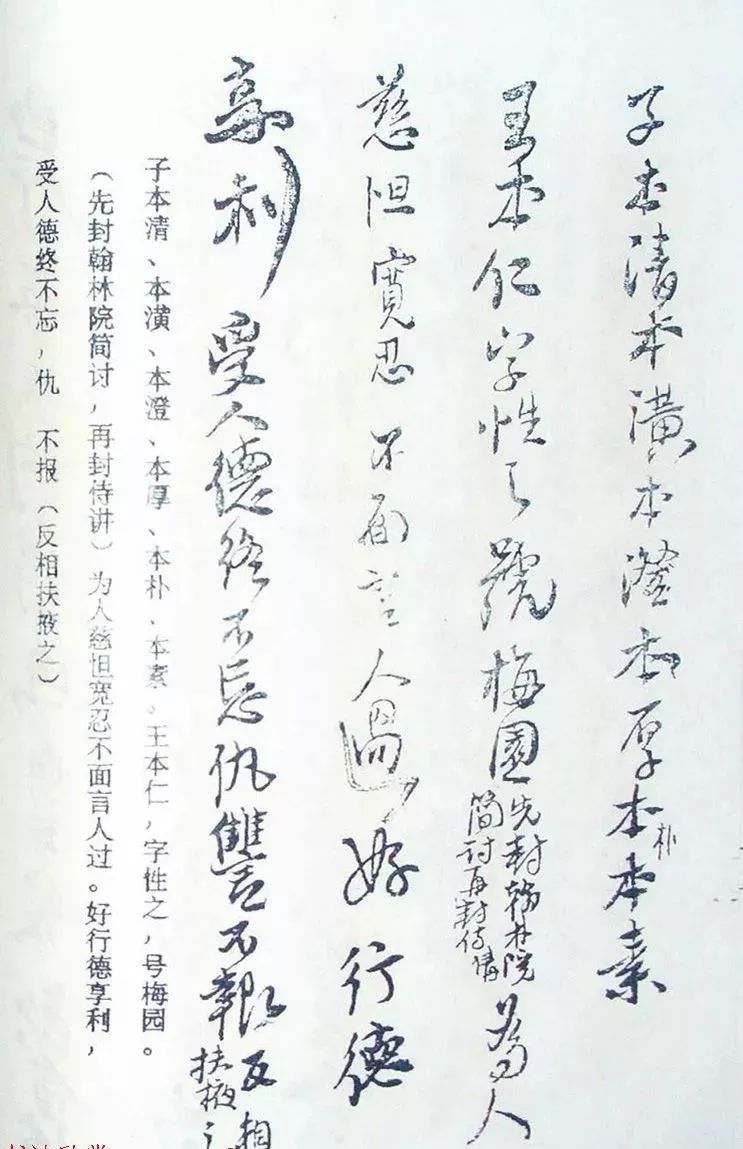 子本清本潢本澄本厚本朴本素
王本仁字性之號梅園先封翰林院
简讨再封侍講為人
慈怛寬忍不面言人過好行德
享利受人德終不忘仇讐不報反相
扶掖之
子本清、本潢、本澄、本厚、本朴、本素。王本仁，字性之，号梅园。
（先封翰林院简讨，再封侍讲）为人慈怛宽忍不面言人过。好行德享利，
受人德终不忘，仇 不报（反相扶掖之）